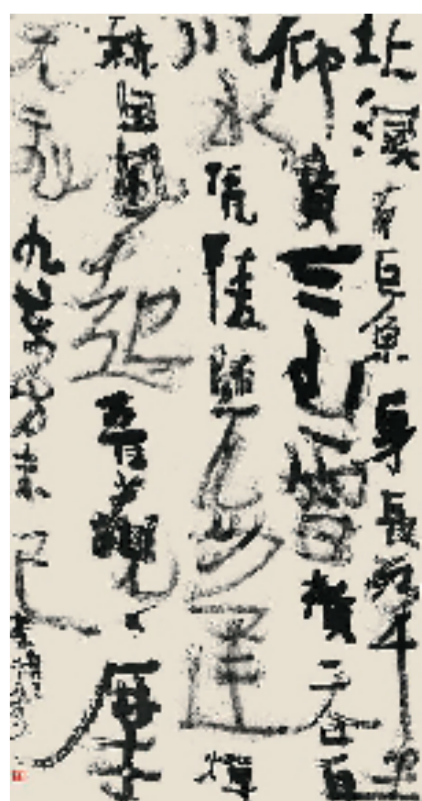 北溟有巨魚身長數千里
仰噴三山雪橫吞百
川水憑陵隨海運燀
赫因風起吾觀摩
天飛九萬方未已